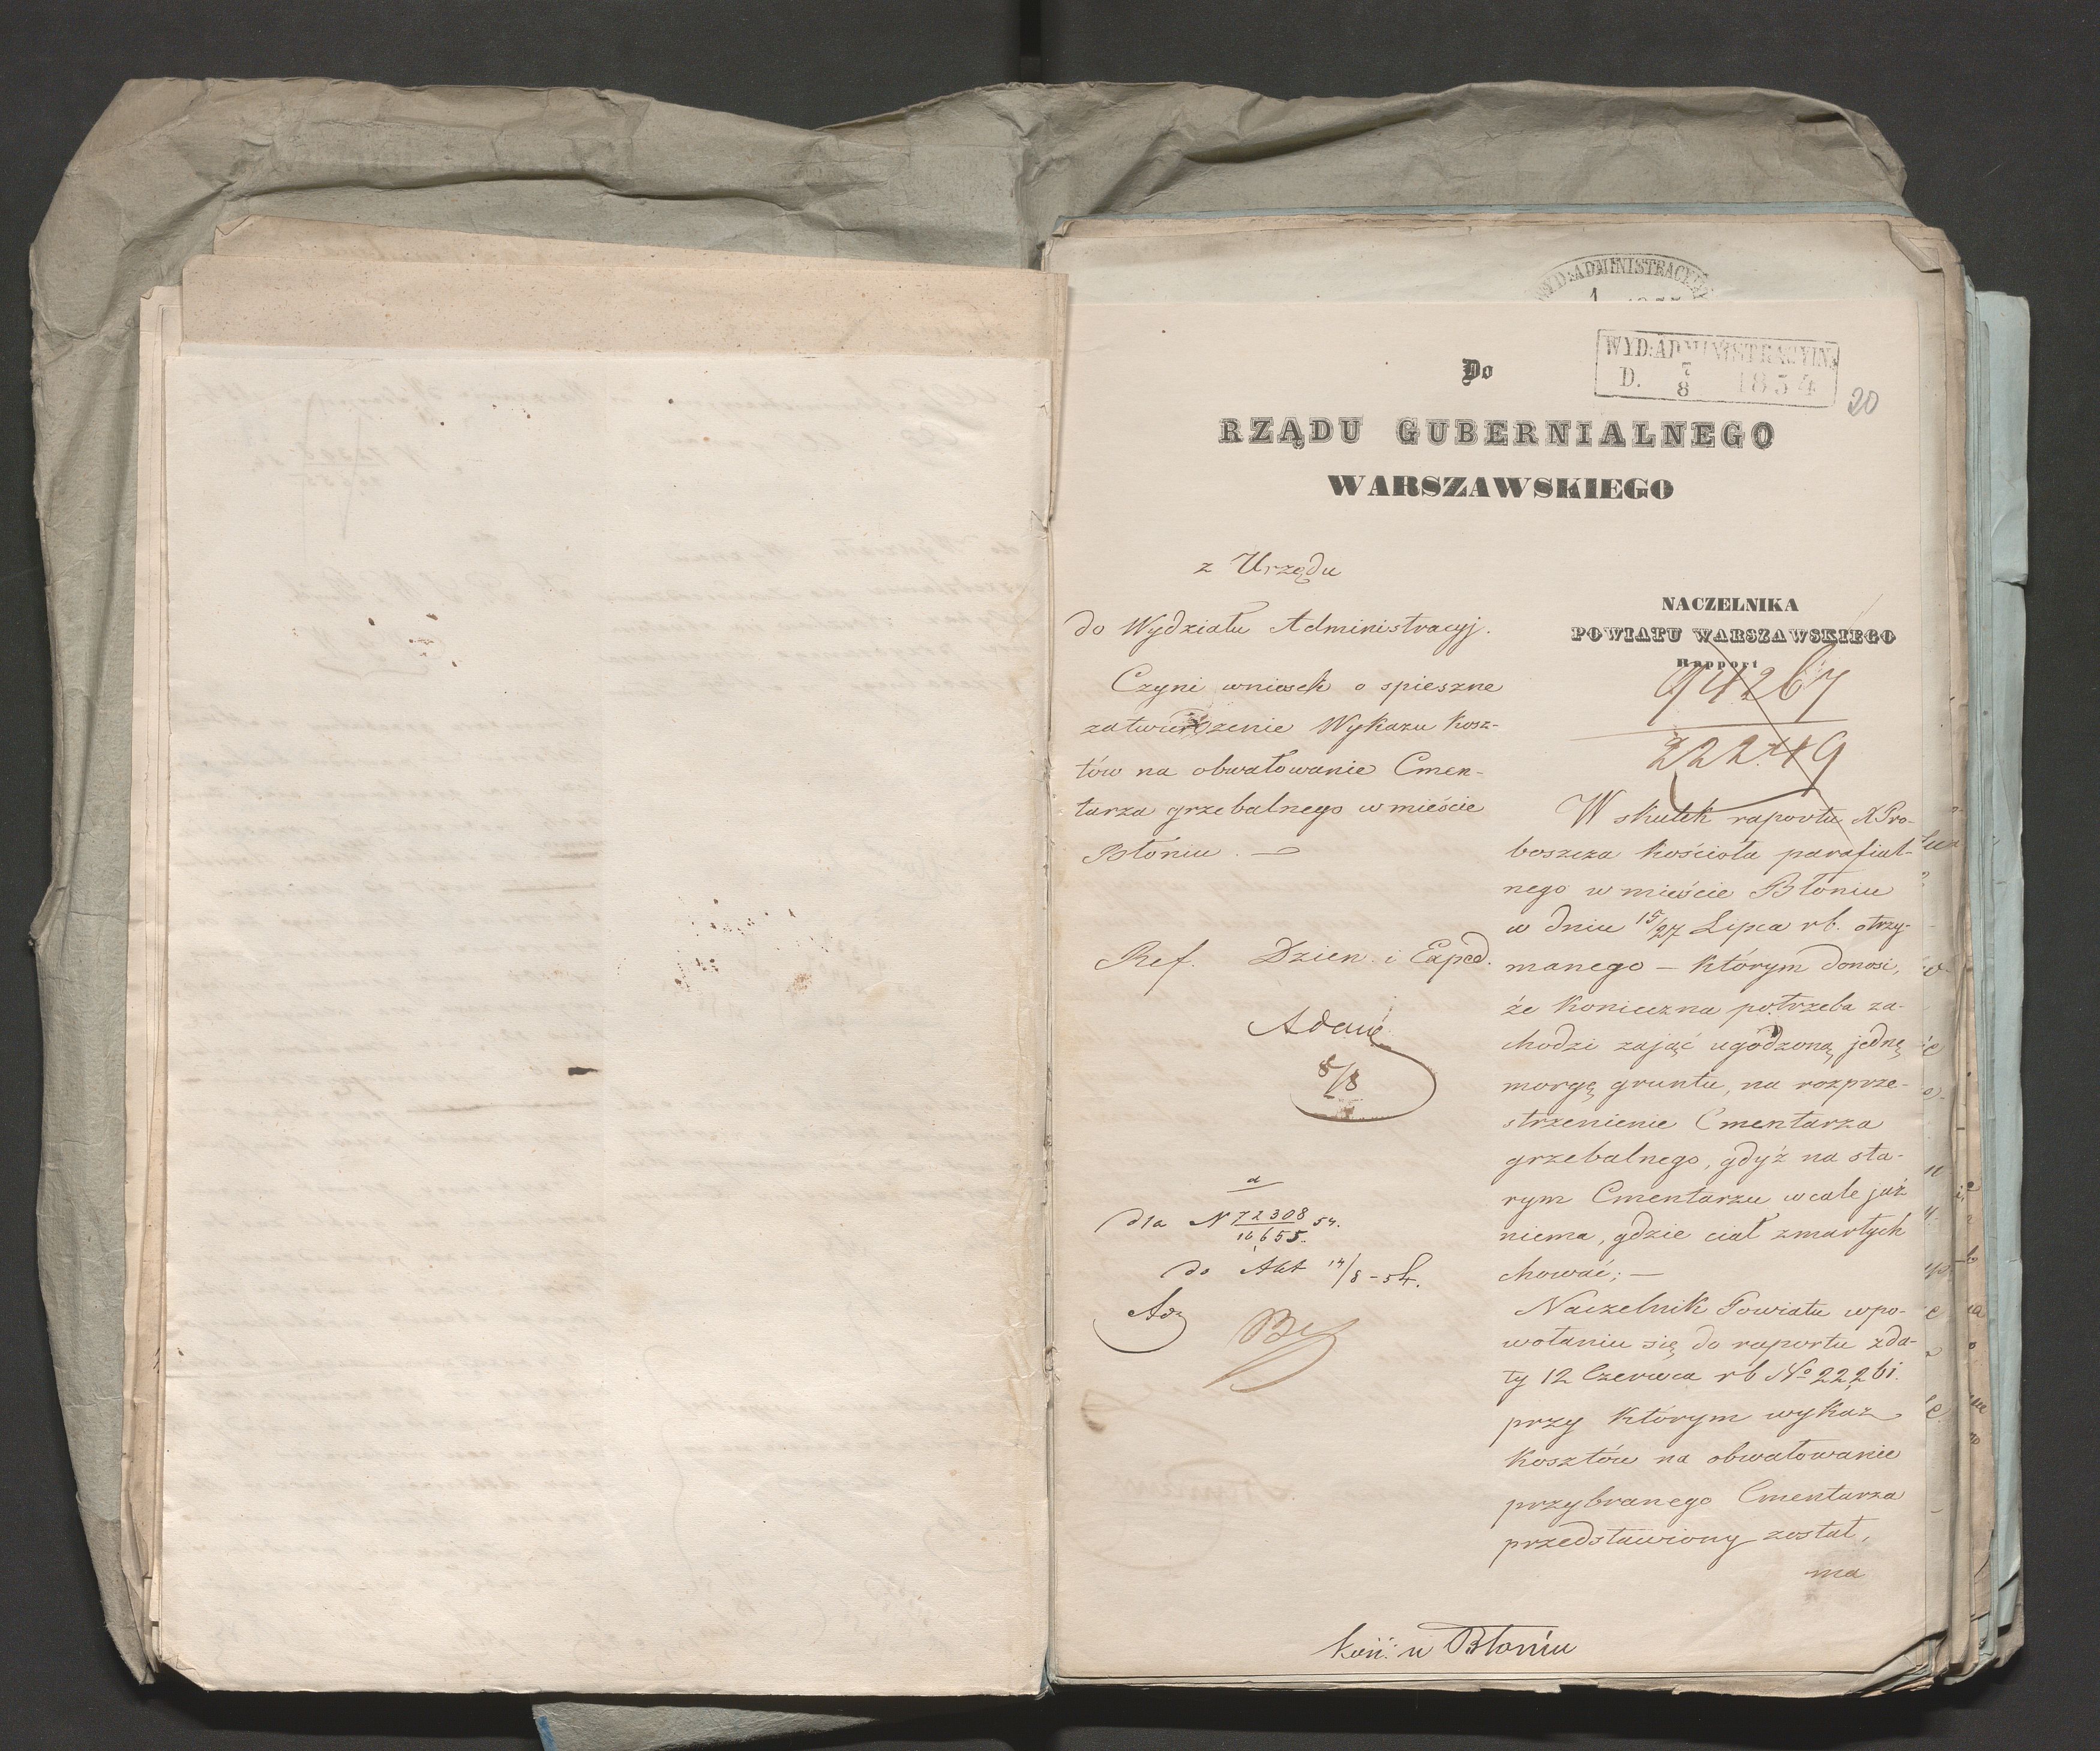 WYD: ADMINISTRACYJNY
WYD: ADMINISTRACYJN:
D. 7/8 1854
20
Do
RZĄDU GUBERNIALNEGO
WARSZAWSKIEGO
z Urzędu
do Wydziału Administracyj.
Czyni wniosek o spieszne
zatwierdzenie Wykazu kosz-
tów na obwałowanie Cmen-
tarza grzebalnego w mieście
Błoniu. —
Ref. Dzien. i Exped.
8/8
a
dla N 72308/16655 54.
do Akt 14/8 - 54.
NACZELNIKA
POWIATU WARSZAWSKIEGO
Rapport
22249
W skutek raportu X Pro-
boszcza kościoła parafial-
nego w mieście Błoniu
w dniu 15/27 Lipca rb. otrzy-
manego — którym donosi,
że konieczna potrzeba za-
chodzi zająć ugodzoną jednę
morgę gruntu, na rozprze-
strzenienie Cmentarza
grzebalnego, gdyż na sta-
rym Cmentarzu wcale już
niema, gdzie ciał zmarłych
chować; —
Naczelnik Powiatu w po-
wołaniu się do raportu z da-
ty 12 Czerwca rb No 22261.
przy którym wykaz
kosztów na obwałowanie
przybranego Cmentarza
przedstawiony został,
ma
Koś: w Błoniu